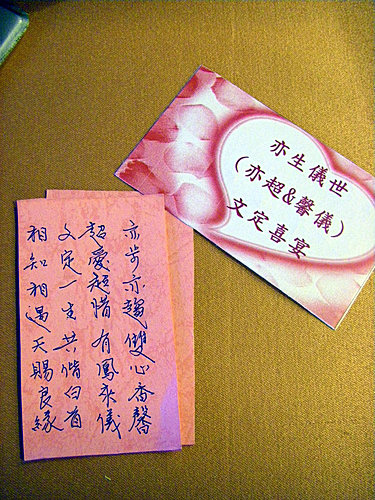 亦生儀世
(亦超&馨儀)
文定喜宴
亦步亦趨雙心香馨
超愛超惜有鳳來儀
文定一生共偕白首
相知相遇天賜良緣